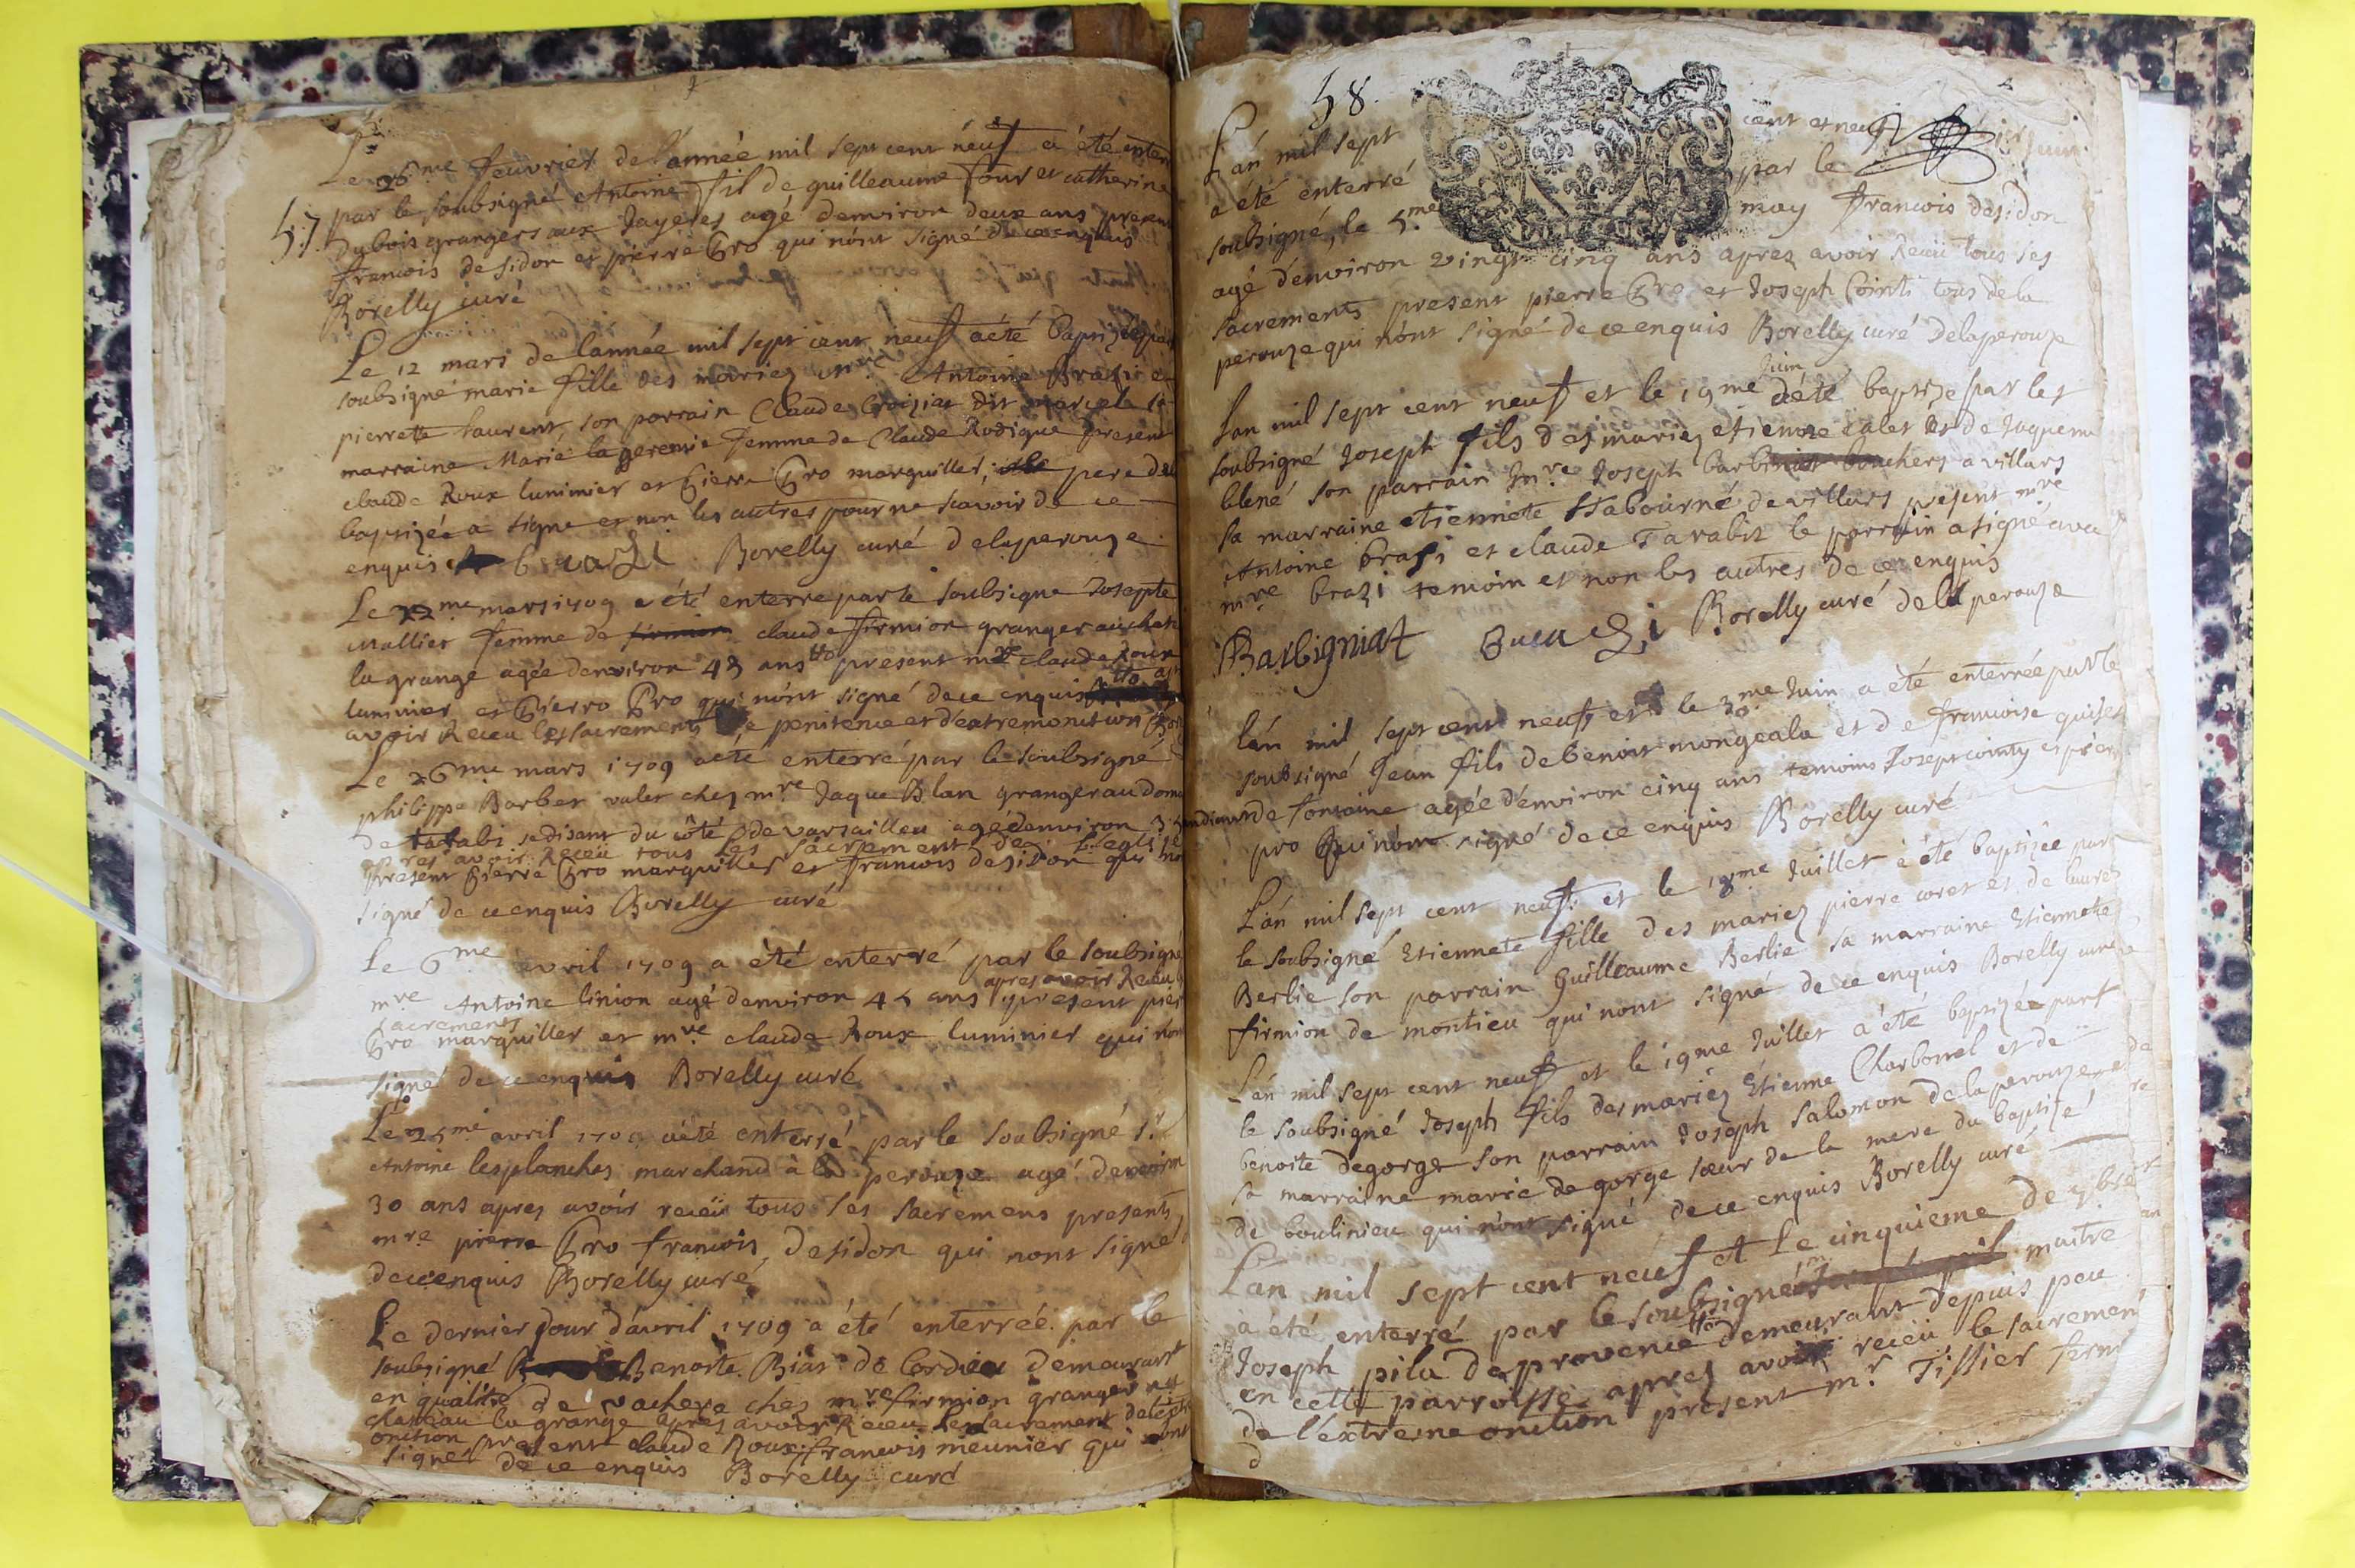 57
Le 26me feuvrier de l'année mil sept cent neuf a été enter
par le soubsigné Antoine fil de guilleaume four et catherine
dubois grangers aux Jayeres agé denviron deux ans present
francois desidon et pierre Gro qui nont signé de ce enquis
Borelly curé
Le 12 mars de lannée mil sept cent neuf a été baptizée par
soubsigné marie fille des mariez mre Antoine Brazi et
pierrette laurent son parrain Claude dit sa
marraine Marie femme de Claude Rodigue present
claude Roux luminier et Pierre Gro marguiller, pere de la
baptizée a signe et non les autres pour ne scavoir de ce
enquis Brazi Borelly curé delaperouze
Le 22me mars 1709 a été enterre par le soubsigne Josepte
Mallier femme de claude firmion granger au chat
la grange agée denviron 43 ans present mre claude roux
luminier et Pierro Gro qui nont signé de ce enquis
avoir Receu les sacrements de penitence et dextremonction
Le 26me mars 1709 a été enterré par le soubsigné
philippe Barber valet chez mre Jaque Blan granger au dom
de tarabi se disant du côté de varsailleu agé denviron
apres avoir Receu tous les sacrement de l'eglise
present Pierre Gro marguiller et francois desidon qui no
signé de ce enquis Borelly curé
Le 6me avril 1709 a été enterré par le soubsigné
apres avoir Receu
mre Antoine linion agé denviron 45 ans present pier
sacrements
Gro marguiller et mre claude Roux luminier qui non
signé de ce enquis Borelly curé
Le 25me avril 1709 a été enterré par le soubsigné sr
Antoine lesplanches marchand à la perouze agé denviron
30 ans apres avoir receu tous ses sacremens presents
mre pierre Gro francois desidon qui nont signé
de ce enquis Borelly curé
Le dernier jour d'avril 1709 a été enterrée par le
soubsigné Benoite Bias de Cordieu demeurant
en qualité de vachere chez mre firmion granger au
chateau la grange apres avoir Receu le sacrement de l'ext
onction present claude Roux francois meunier qui nont
signé de ce enquis Borelly curé
58.
L'an mil sept cent et neuf
a été enterré par le
soubsigné, le 5me may francois desidon
agé denviron vingt cinq ans apres avoir Receu tous ses
sacrements present pierre Gro et Joseph Cointi tous de la
perouze qui nont signé de ce enquis Borelly curé delaperouze
juin
Lan mil sept cent neuf et le 19me a été baptize par le
soubsigné Joseph fils des mariez etienne calet et de Jaqueme
blené son parrain mre Joseph barbiniat bouchers a villars
sa marraine etiennete Habourné de villars present mre
Antoine brasi et claude Tarabit le parrain a signé avec
mre brazi temoin et non les autres de ce enquis
Barbigniat Brazi Borelly curé de la perouze
lan mil sept cent neuf et le 30me Juin a été enterrée par le
soubsigné Jean fils de benoit mongeala et de francoise
mendiant de fontaine agée denviron cinq ans temoins Josept cointy et pierre
gro Qui nont signé de ce enquis Borelly curé
L'an mil sept cent neuf et le 18me Juillet a été baptizée par
le soubsigné Etiennete fille des mariez pierre coret et de
Berlie son parrain Guilleaume Berlie sa marraine Etiennete
firmion de montieu qui nont signé de ce enquis Borelly curé
Lan mil sept cent neuf et le 19me Juillet a été baptizée par
le soubsigné Joseph fils des mariez Etienne Charbonel et de
benoite degorge son parrain Joseph salomon de la perouze et de
sa marraine marie de gorge sœur de la mere du baptisé
de boulinieu qui nont signé de ce enquis Borelly curé
Lan mil sept cent neuf et le cinquieme de 7bre
a été enterré par le soubsigné maitre
Joseph pila de provence demeurant depuis peu
en cette parroisse apres avoir receu le sacrement
de l'extreme onction present mr Tissier